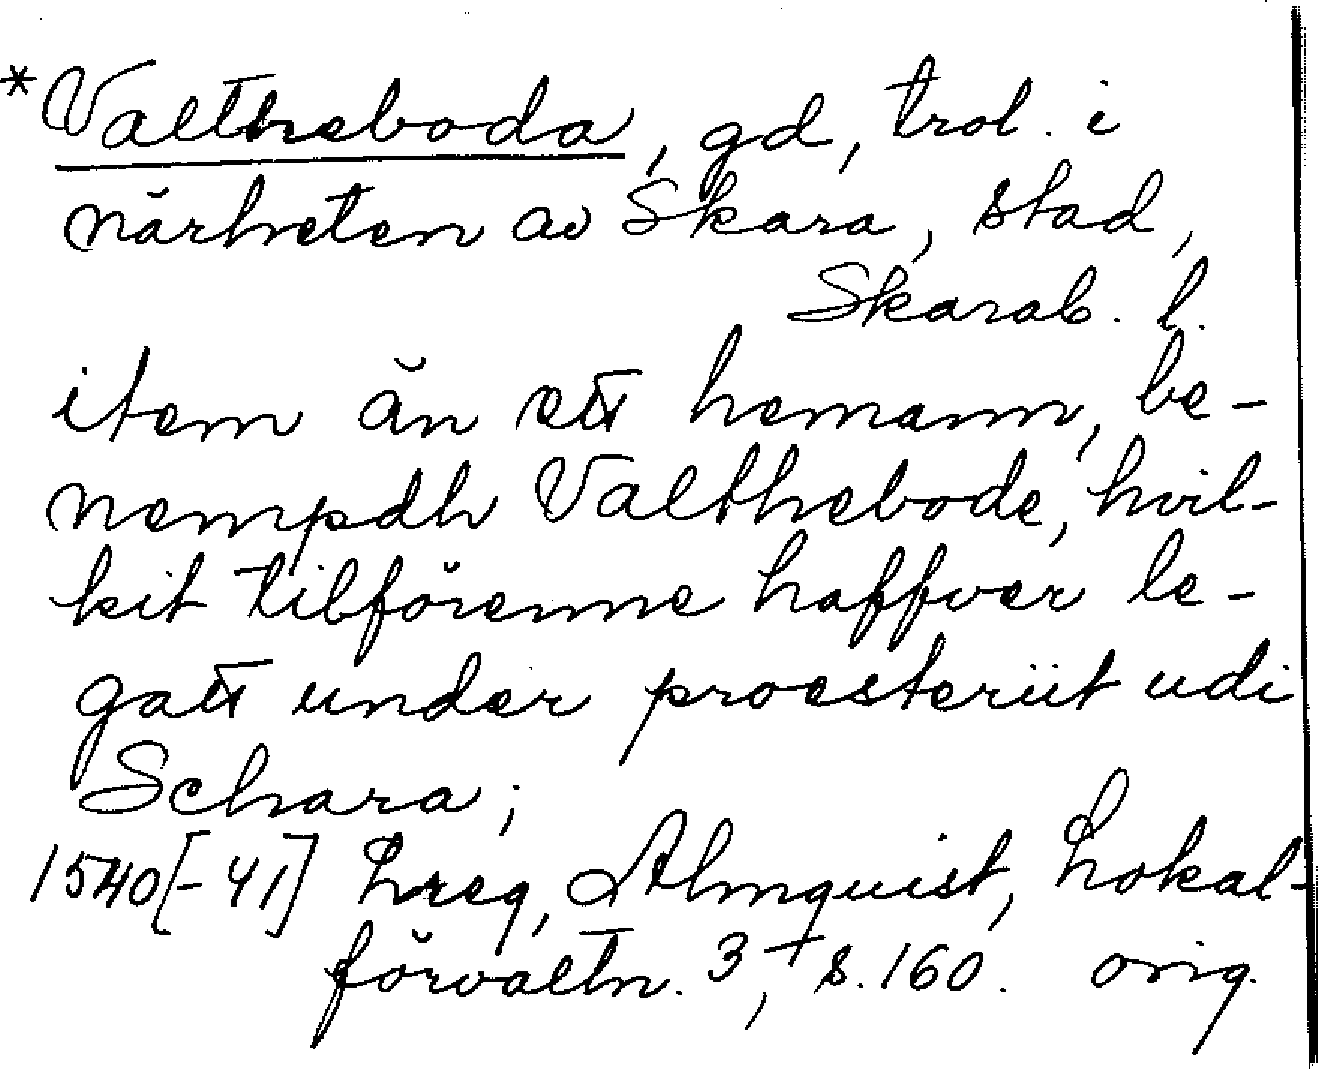 *Valtheboda, gd, trol. i
närheten av Skara, stad,
Skarab. l.
item än ett hemann, be-
nempdh Valthebode, hvil-
kit tilförenne haffver le-
gatt under proesteriit udi
Schara;
1540[-41] Lreg, Almquist, Lokal-
förvaltn. 3,+ s. 160. orig.